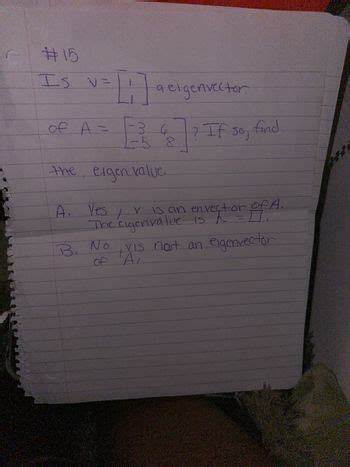 #15
Is v = [1 1] a eigenvector
of A = [-3 6 -5 8]? If so, find
the eigenvalue.
A. Yes, v is an envector of A.
The eigenvalue is λ = □.
B. No, v is not an eigenvector
of A,